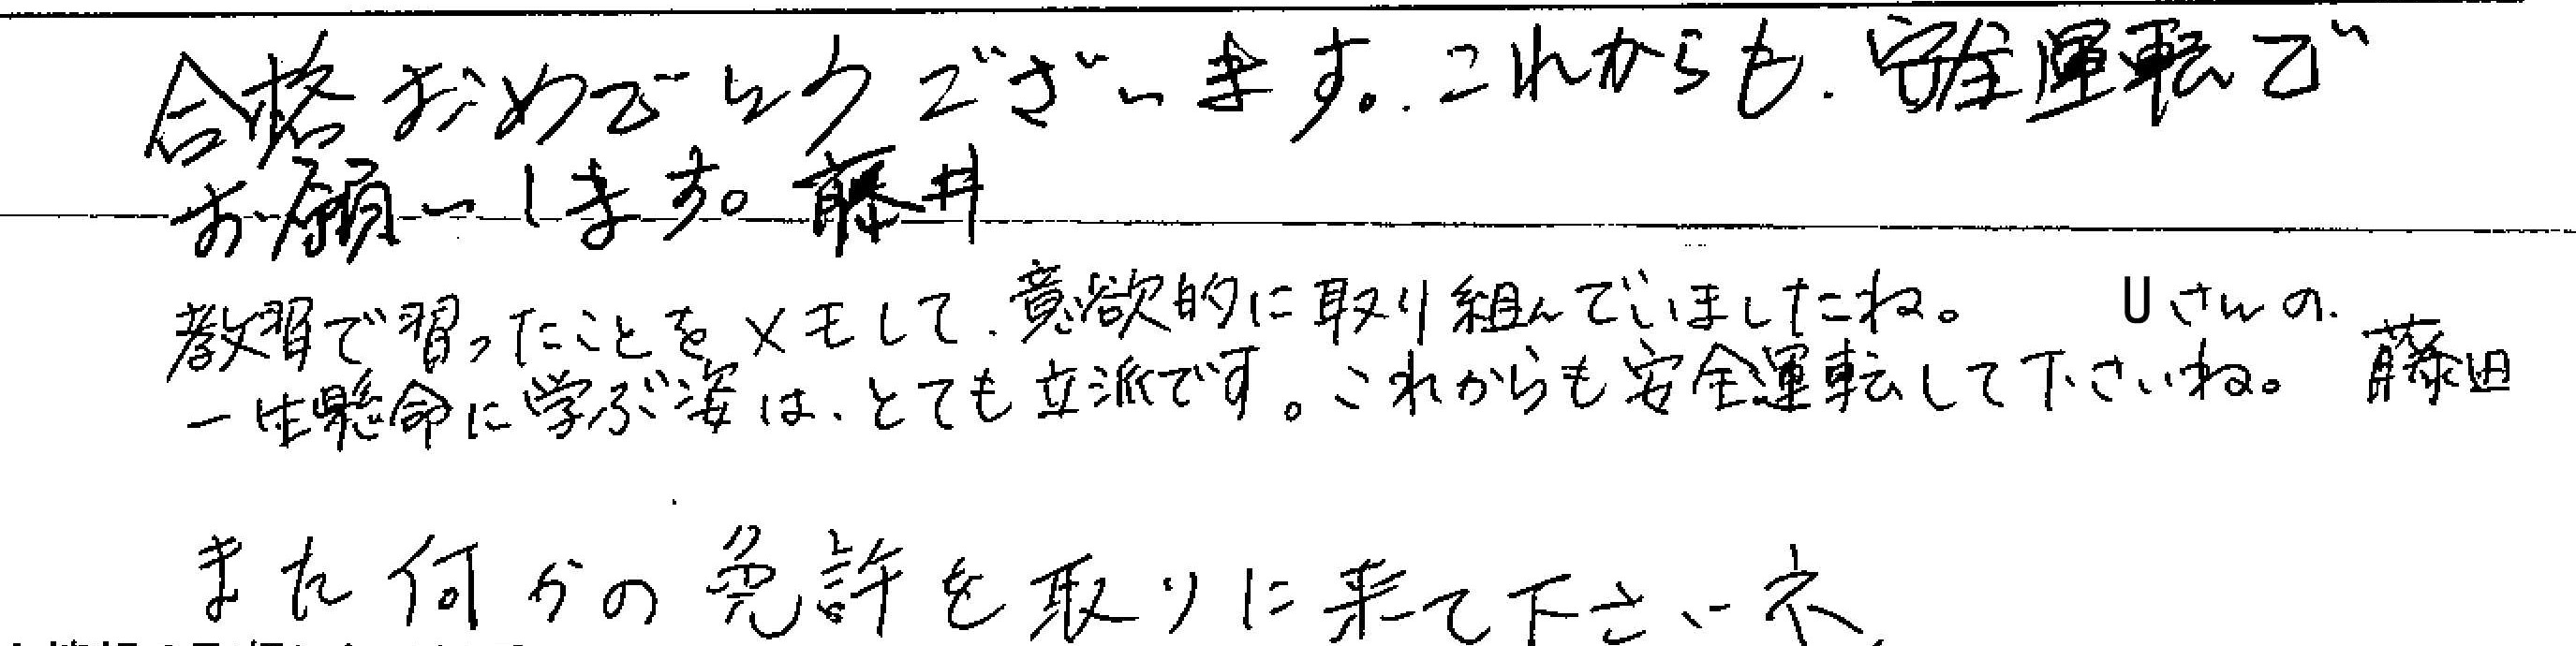 合格おめでとうございます。これからも、安全運転で
お願いします。藤井
教習で習ったことをメモして、意欲的に取り組んでいましたね。 Uさんの
一生懸命に学ぶ姿は、とても立派です。これからも安全運転して下さいね。 藤田
また何かの免許を取りに来て下さいネ。